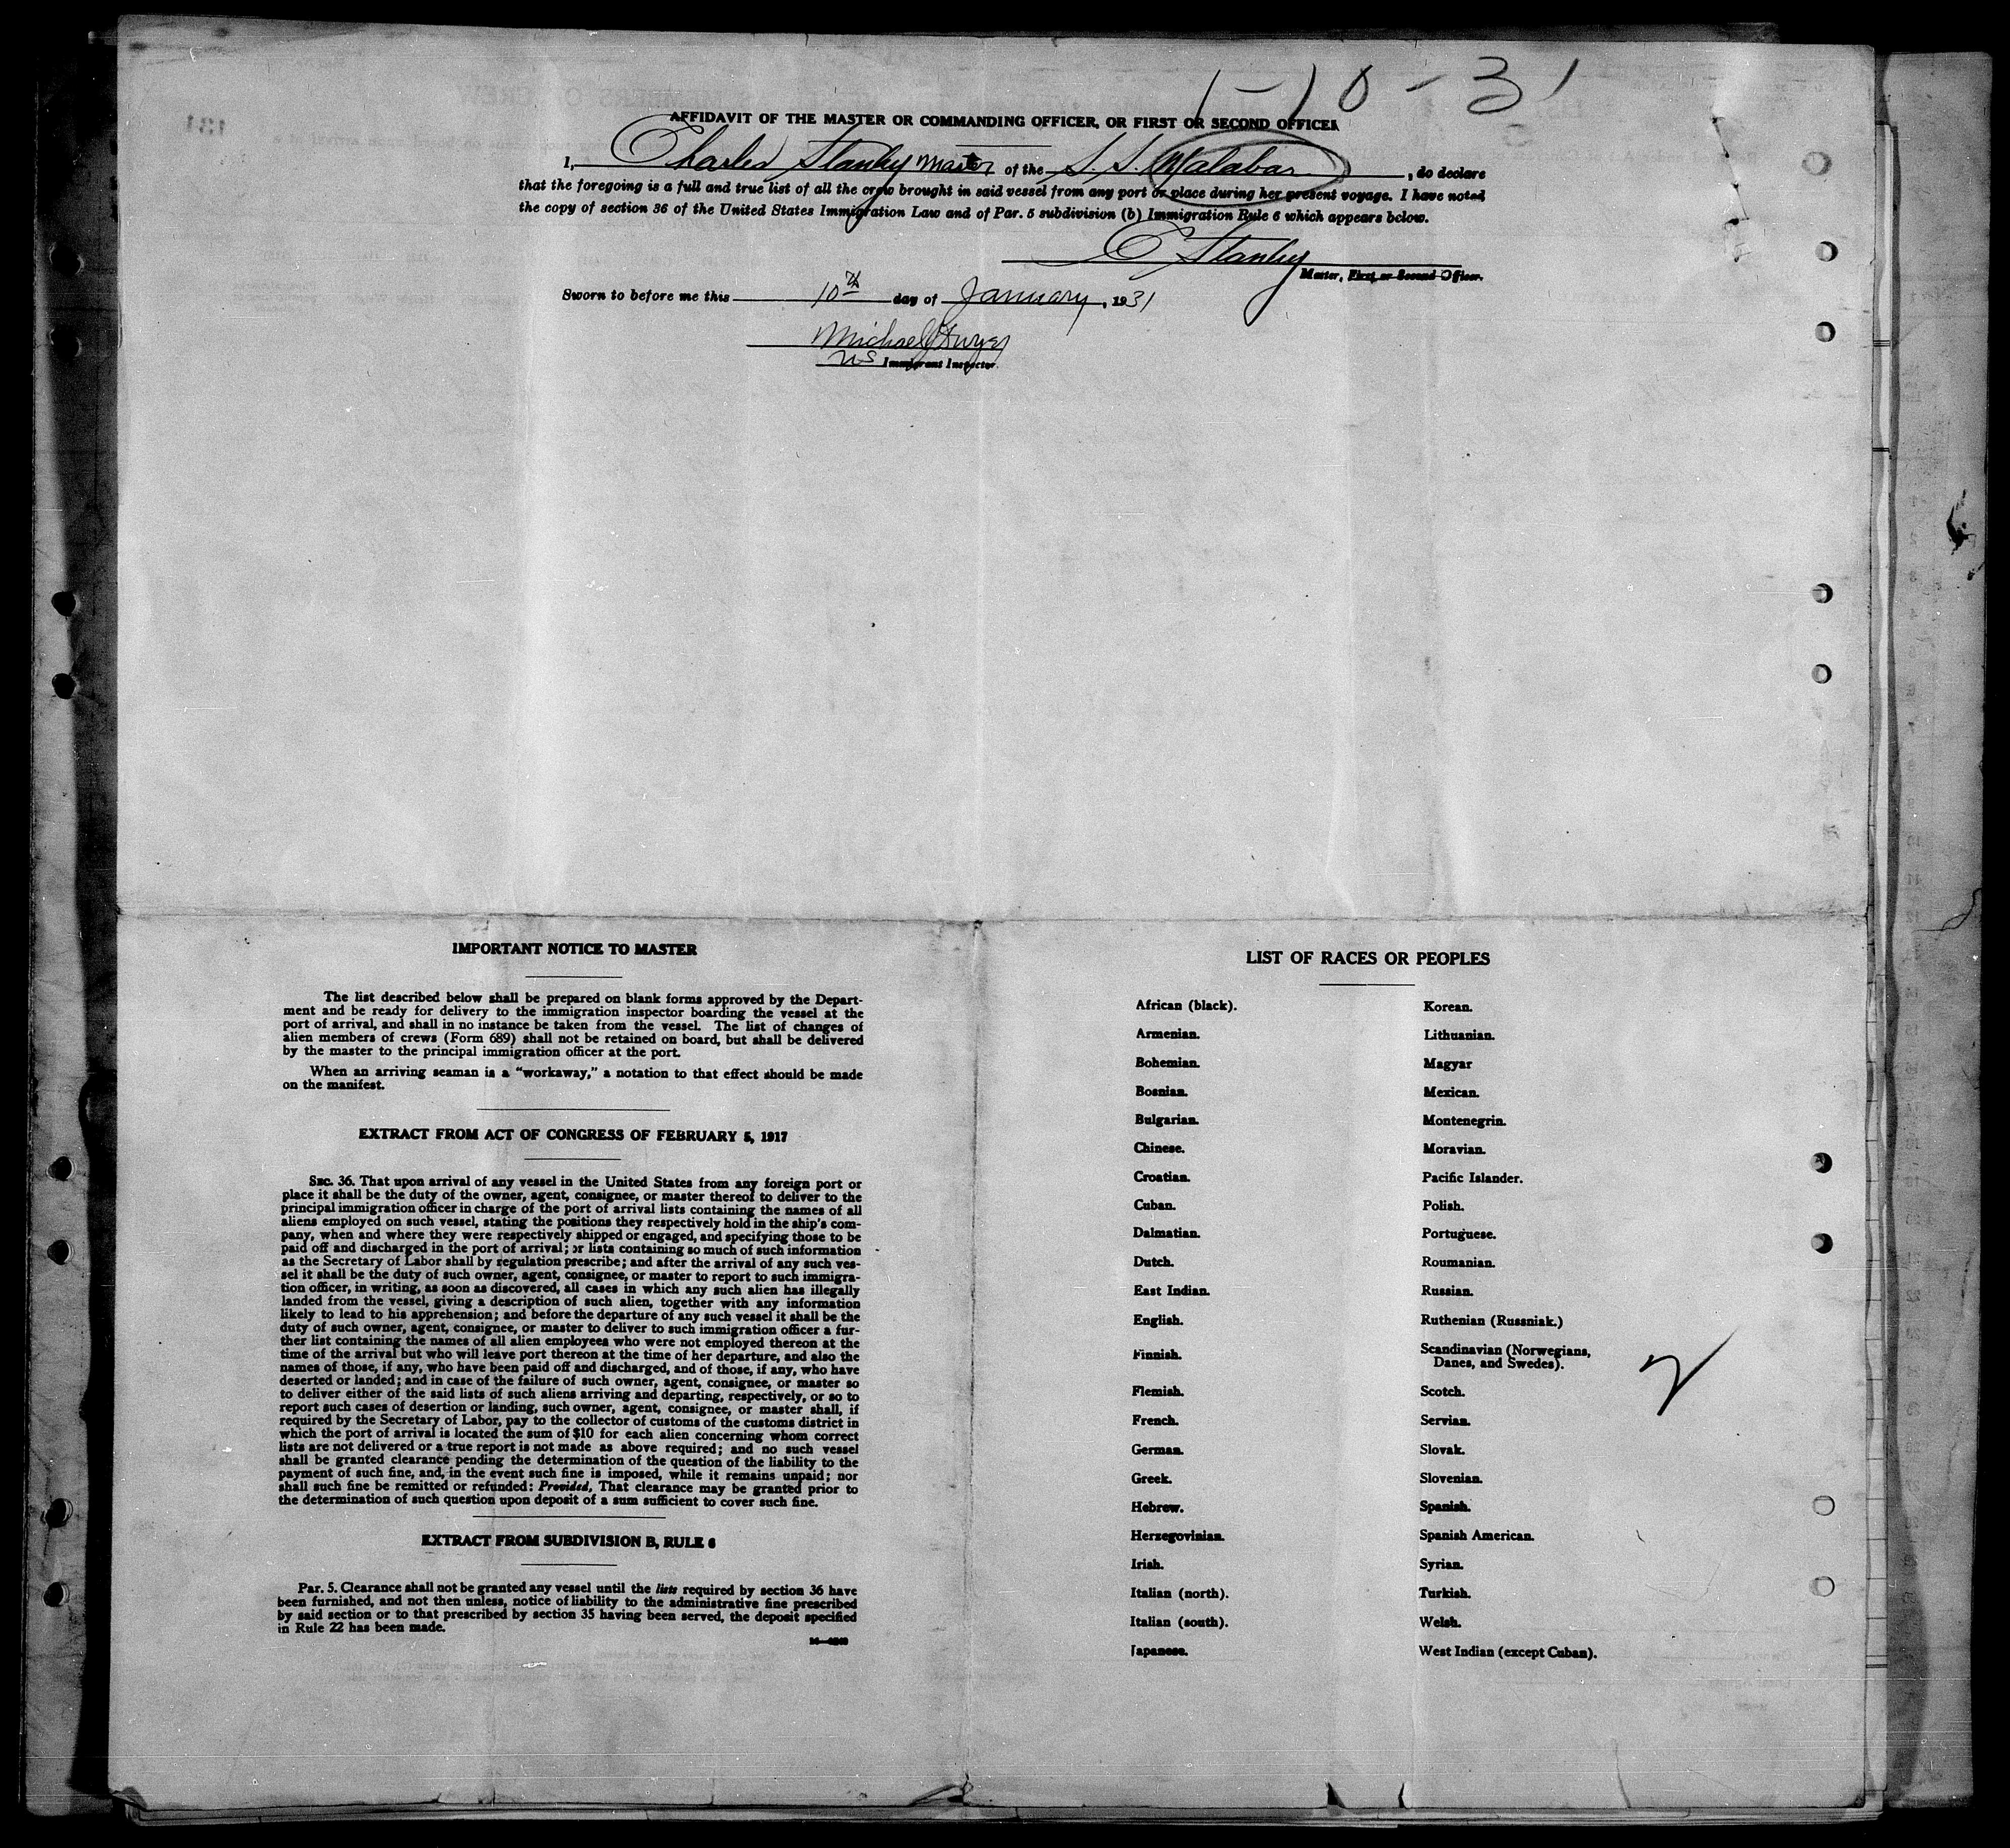 1-10-31
AFFIDAVIT OF THE MASTER OR COMMANDING OFFICER, OR FIRST OR SECOND OFFICER
I, Charles Stanley Master of the S. S. Malabar, do declare
that the foregoing is a full and true list of all the crew brought in said vessel from any port or place during her present voyage. I have noted
the copy of section 36 of the United States Immigration Law and of Par. 5 subdivision (b) Immigration Rule 6 which appears below.
C Stanley
Master, First or Second Officer.
Sworn to before me this 10th day of January, 1931
Michael
US Immigrant Inspector.
IMPORTANT NOTICE TO MASTER
The list described below shall be prepared on blank forms approved by the Depart-
ment and be ready for delivery to the immigration inspector boarding the vessel at the
port of arrival, and shall in no instance be taken from the vessel. The list of changes of
alien members of crews (Form 689) shall not be retained on board, but shall be delivered
by the master to the principal immigration officer at the port.
When an arriving seaman is a "workaway," a notation to that effect should be made
on the manifest.
EXTRACT FROM ACT OF CONGRESS OF FEBRUARY 5, 1917
SEC. 36. That upon arrival of any vessel in the United States from any foreign port or
place it shall be the duty of the owner, agent, consignee, or master thereof to deliver to the
principal immigration officer in charge of the port of arrival lists containing the names of all
aliens employed on such vessel, stating the positions they respectively hold in the ship's com-
pany, when and where they were respectively shipped or engaged, and specifying those to be
paid off and discharged in the port of arrival; or lists containing so much of such information
as the Secretary of Labor shall by regulation prescribe; and after the arrival of any such ves-
sel it shall be the duty of such owner, agent, consignee, or master to report to such immigra-
tion officer, in writing, as soon as discovered, all cases in which any such alien has illegally
landed from the vessel, giving a description of such alien, together with any information
likely to lead to his apprehension; and before the departure of any such vessel it shall be the
duty of such owner, agent, consignee, or master to deliver to such immigration officer a fur-
ther list containing the names of all alien employees who were not employed thereon at the
time of the arrival but who will leave port thereon at the time of her departure, and also the
names of those, if any, who have been paid off and discharged, and of those, if any, who have
deserted or landed; and in case of the failure of such owner, agent, consignee, or master so
to deliver either of the said lists of such aliens arriving and departing, respectively, or so to
report such cases of desertion or landing, such owner, agent, consignee, or master shall, if
required by the Secretary of Labor, pay to the collector of customs of the customs district in
which the port of arrival is located the sum of $10 for each alien concerning whom correct
lists are not delivered or a true report is not made as above required; and no such vessel
shall be granted clearance pending the determination of the question of the liability to the
payment of such fine, and, in the event such fine is imposed, while it remains unpaid; nor
shall such fine be remitted or refunded: Provided, That clearance may be granted prior to
the determination of such question upon deposit of a sum sufficient to cover such fine.
EXTRACT FROM SUBDIVISION B, RULE 6
Par. 5. Clearance shall not be granted any vessel until the lists required by section 36 have
been furnished, and not then unless, notice of liability to the administrative fine prescribed
by said section or to that prescribed by section 35 having been served, the deposit specified
in Rule 22 has been made.
LIST OF RACES OR PEOPLES
African (black).
Armenian.
Bohemian.
Bosnian.
Bulgarian.
Chinese.
Croatian.
Cuban.
Dalmatian.
Dutch.
East Indian.
English.
Finnish.
Flemish.
French.
German.
Greek.
Hebrew.
Herzegovinian.
Irish.
Italian (north).
Italian (south).
Japanese.
Korean.
Lithuanian.
Magyar
Mexican.
Montenegrin.
Moravian.
Pacific Islander.
Polish.
Portuguese.
Roumanian.
Russian.
Ruthenian (Russniak.)
Scandinavian (Norwegians,
Danes, and Swedes).
Scotch.
Servian.
Slovak.
Slovenian.
Spanish.
Spanish American.
Syrian.
Turkish.
Welsh.
West Indian (except Cuban).